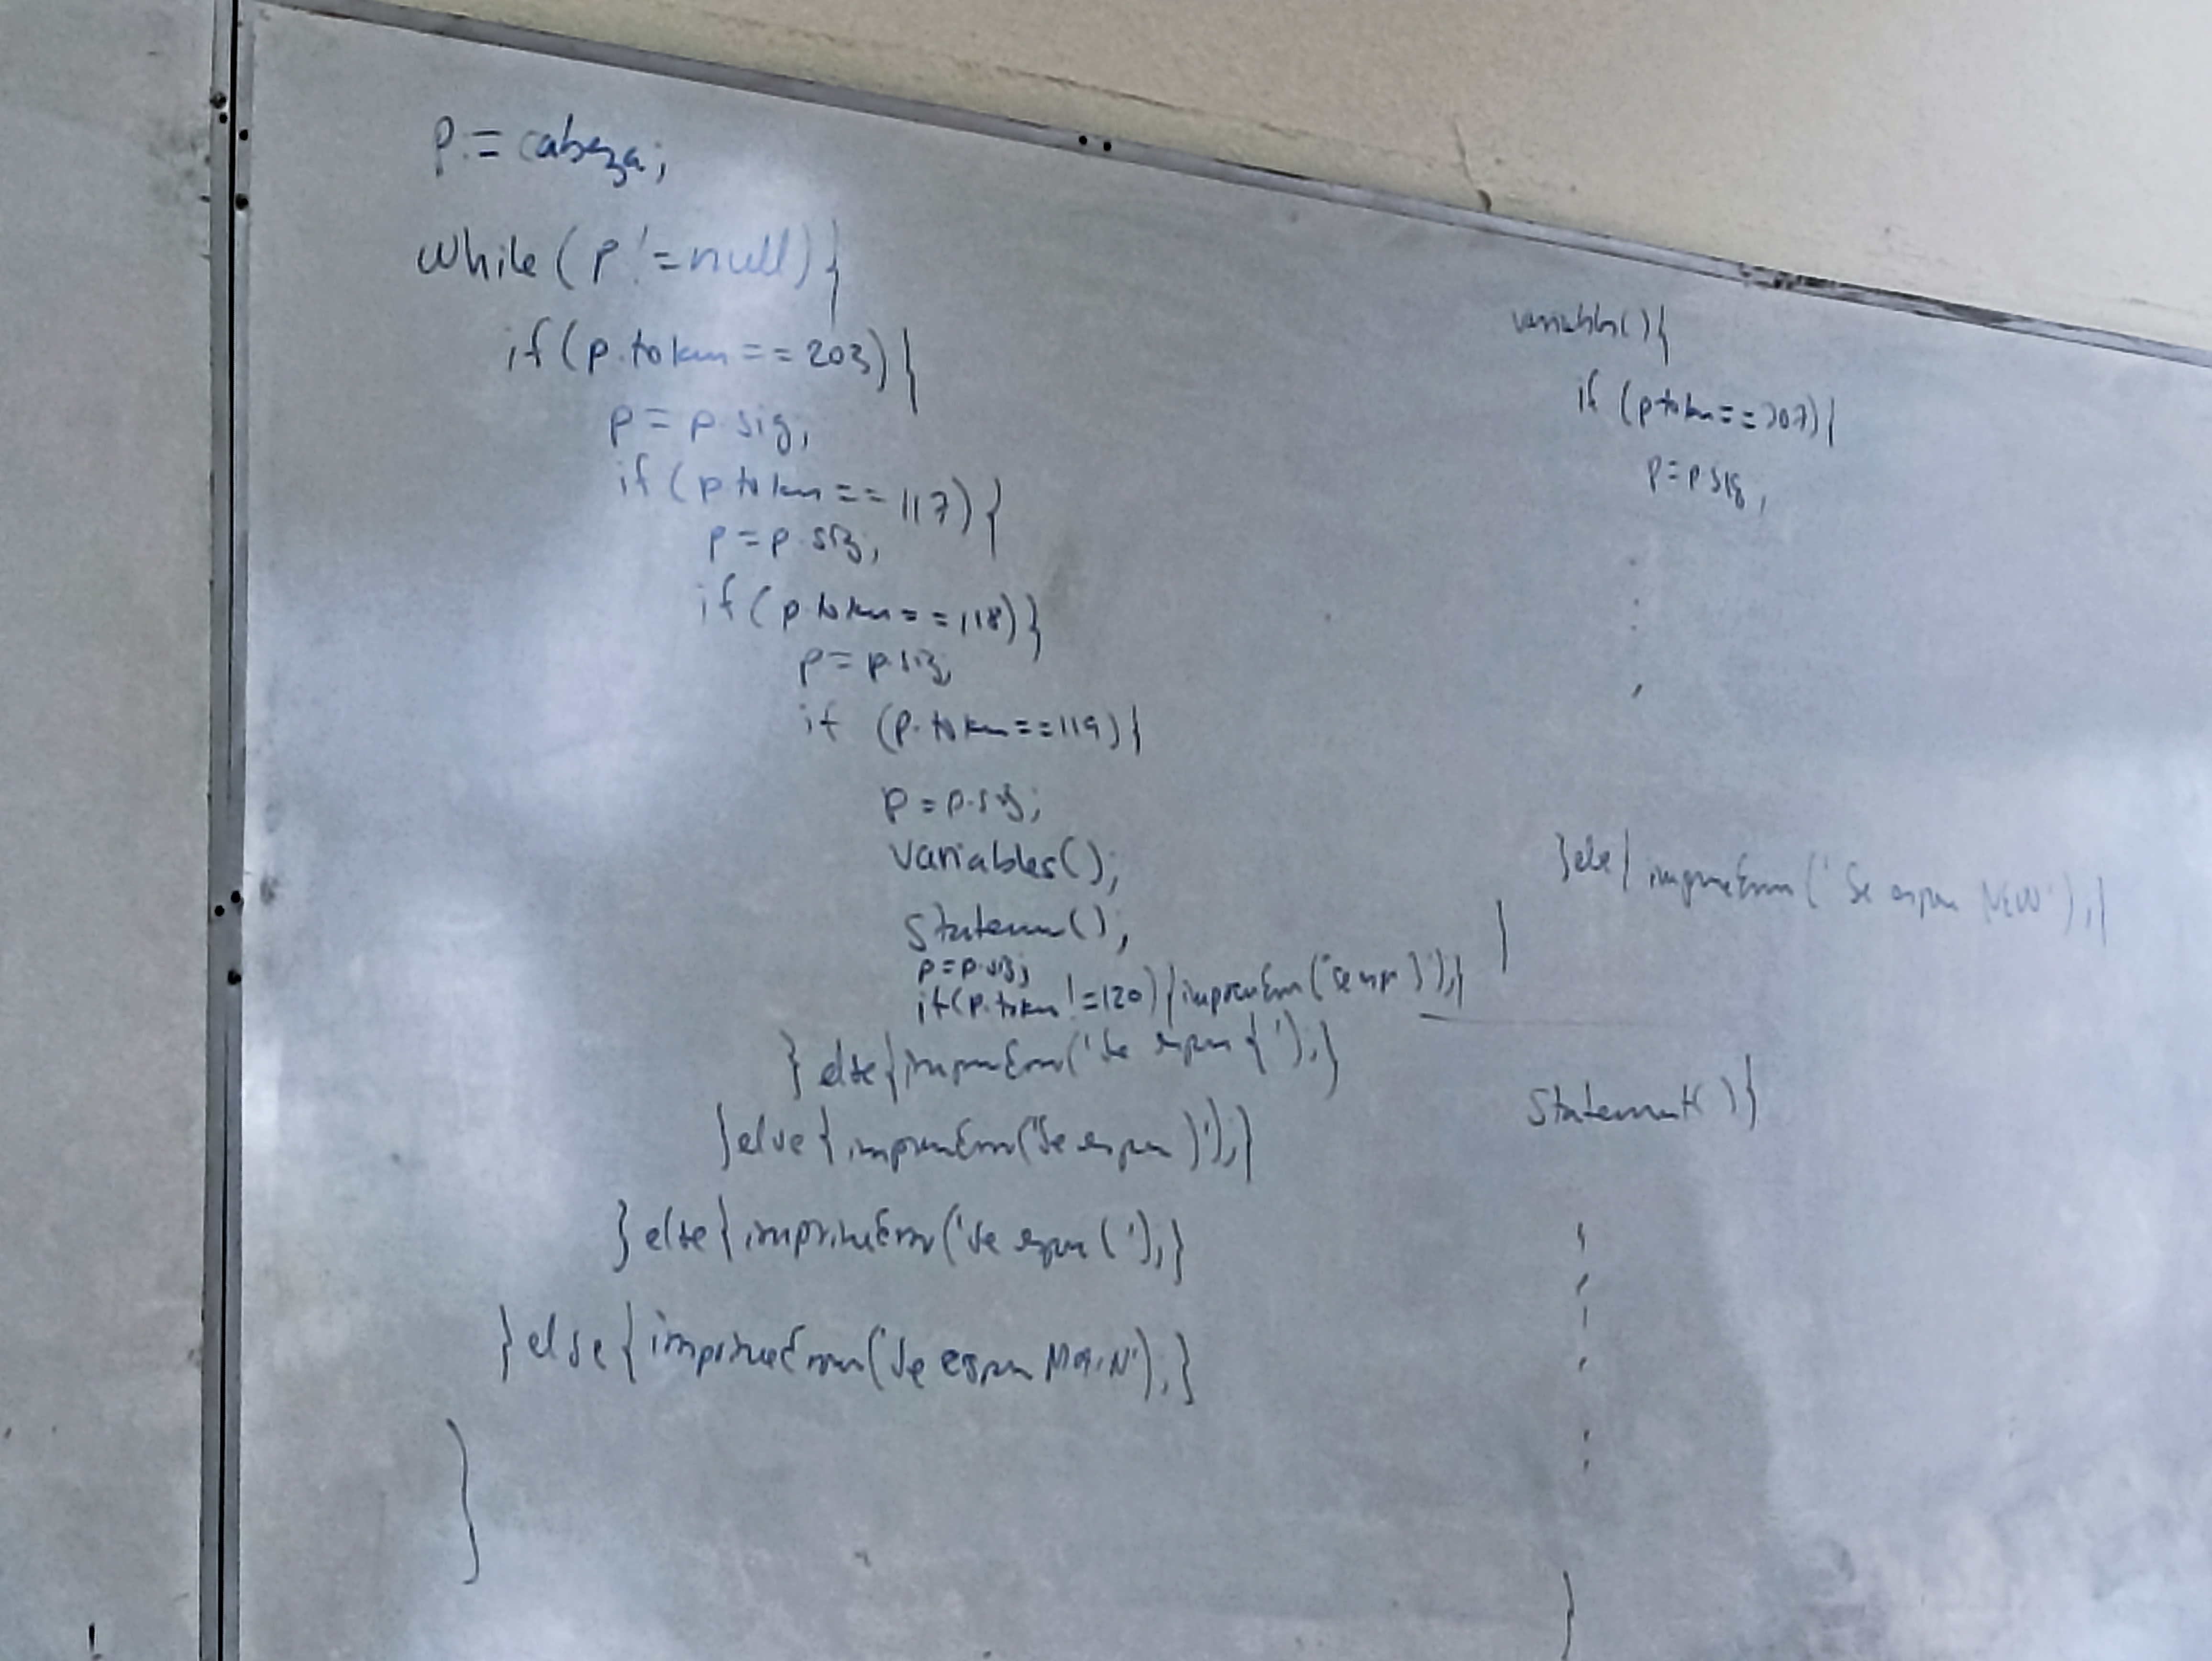 p:= cabeza;
while(p!=null){
if(p.token==203){
p=p.sig;
if(p.token==117){
p=p.sig;
if(p.token==118){
p=p.sig;
if (p.token==119){
p=p.sig;
variables();
statem();
p=p.sig;
if(p.token!=120){imprimError("se espr }");}
}else{imprimError('Se espera {');}
}else{imprimError('Se espera )');}
}else{imprimeError('Se espera (');}
}else{imprimeError('Se espera MAIN');}
}
variables(){
if (p.token==207){
p=p.sig;
}else{imprimeError('Se espera NEW');}
}
Statement(){
}